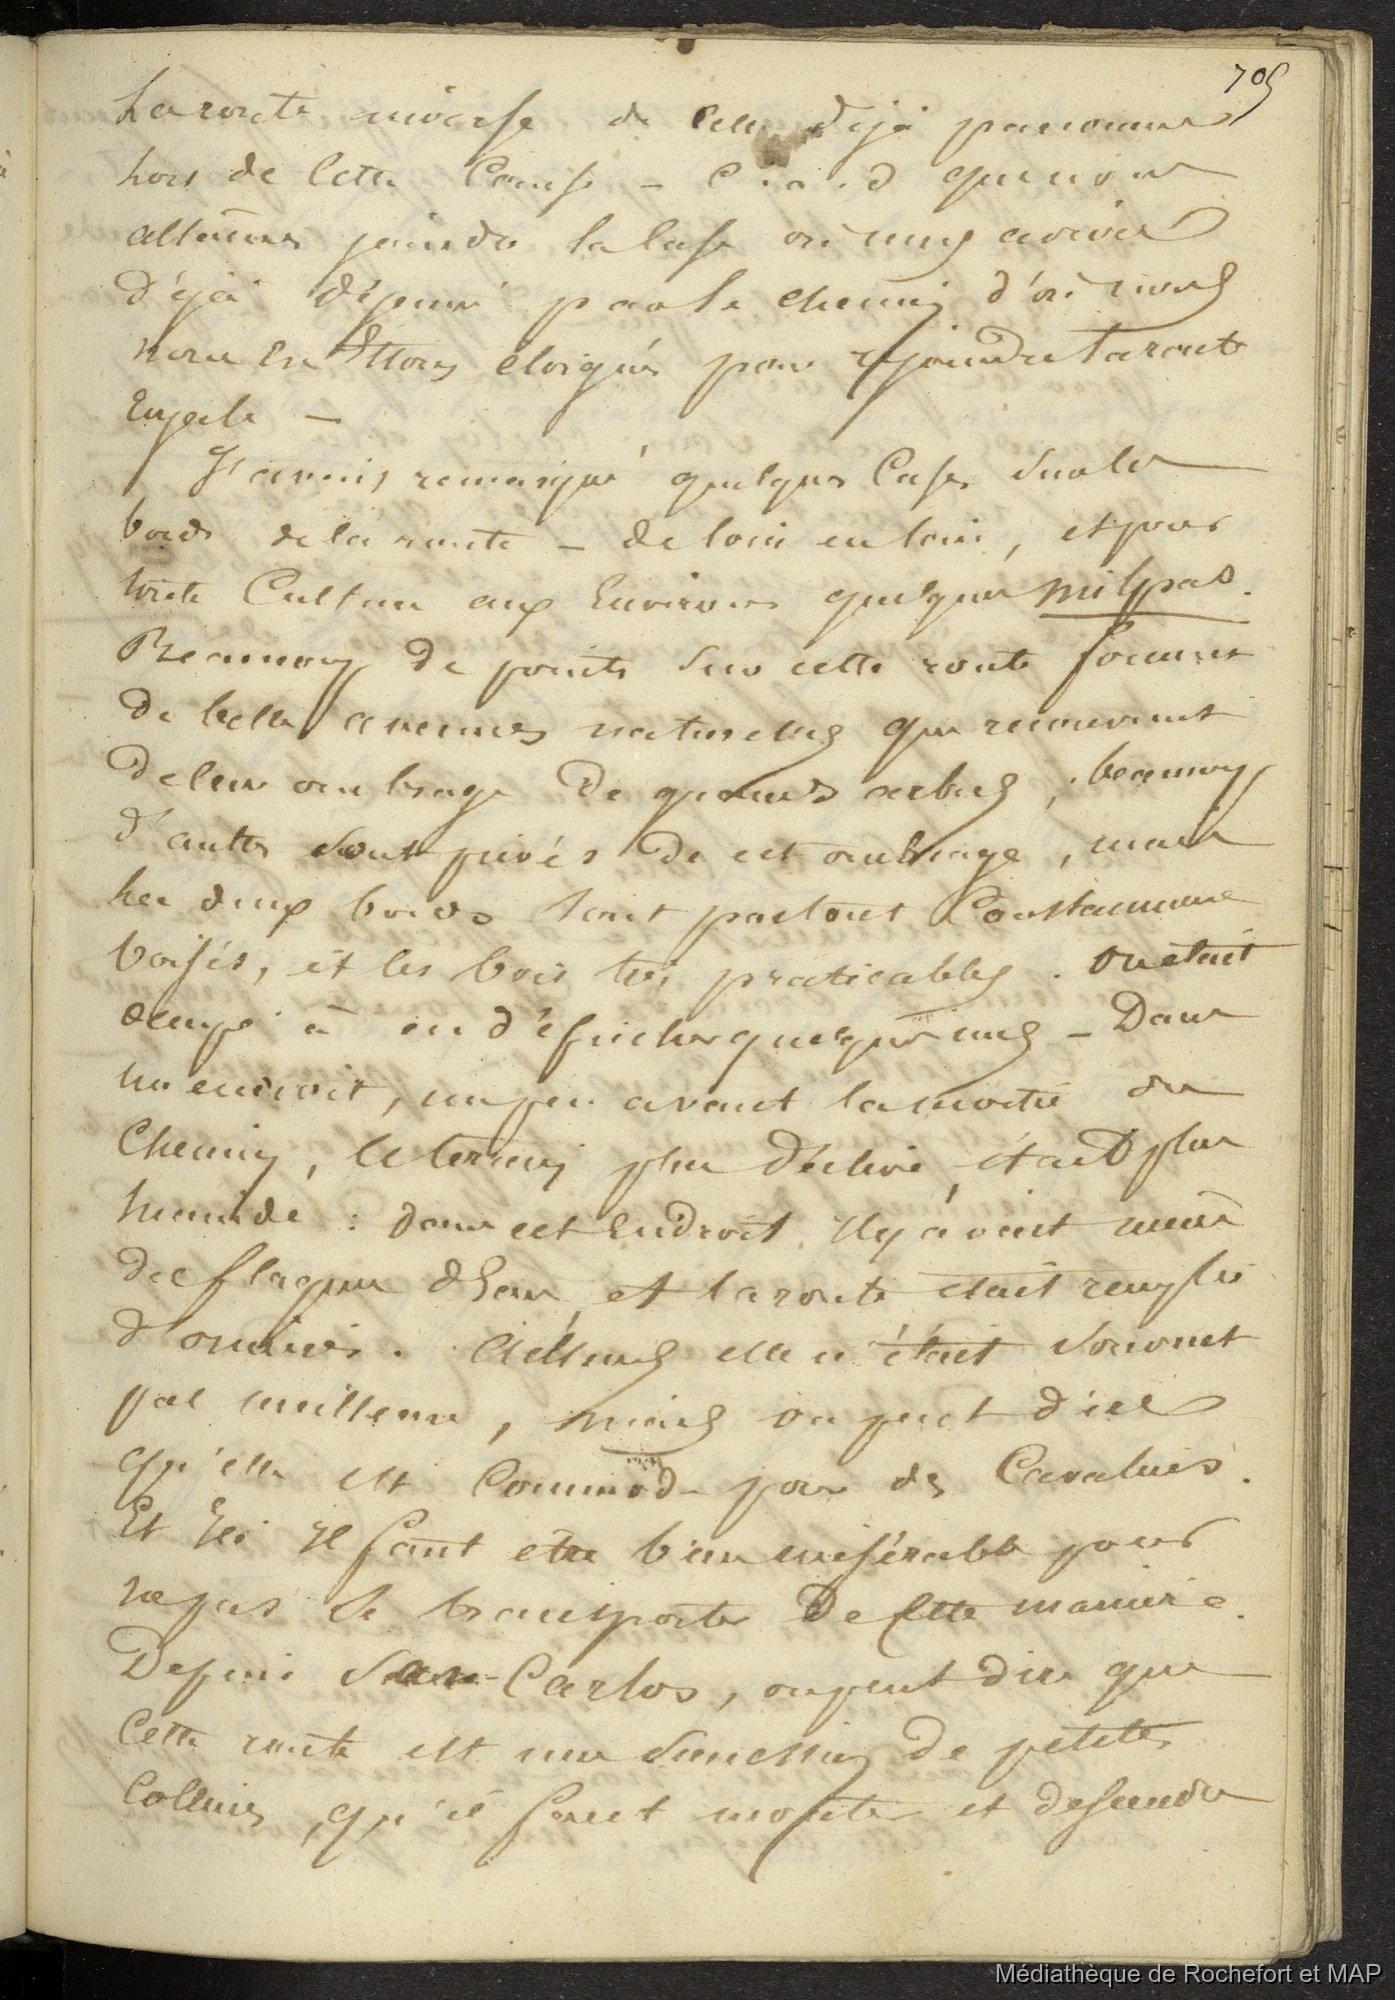 705
La route inverse de celle déjà parcourue
hors de cette Course - quenous
allâmes joindre la Case où nous avions
Déjà déjeuné par le chemin d'où nous
nous en étions éloignés pour rejoindre la route
Royale —
J'avais remarqué quelques Cases sur les
bords de la route - de loin en loin, et pour
toute Culture aux Environs quelques milpas.
Beaucoup de points sur cette route forment
de belles avenues naturelles que recouvrent
de leur ombrage de grands arbres, beaucoup
d'autres sont privés de cet ombrage, mais
les deux bords sont partout Constamment
boisés, et les bois très praticables. on était
occupé à en défricher quelqu'uns - Dans
un endroit, un peu avant la moitié du
Chemin, le terrain plus déclive, était plus
humide : dans cet Endroit il y avait même
des flaques d'Eau, et la route était remplie
d'ornières. Ailleurs elle n'était souvent
pas meilleure, mais on peut dire
qu'elle est Commode pour des Cavaliers.
Et Ici Il faut etre bien misérable pour
ne pas se transporter de cette manière.
Depuis San-Carlos, on peut dire que
Cette route est une succession de petites
Collines, qu'il faut monter et descendre
Médiathèque de Rochefort et MAP